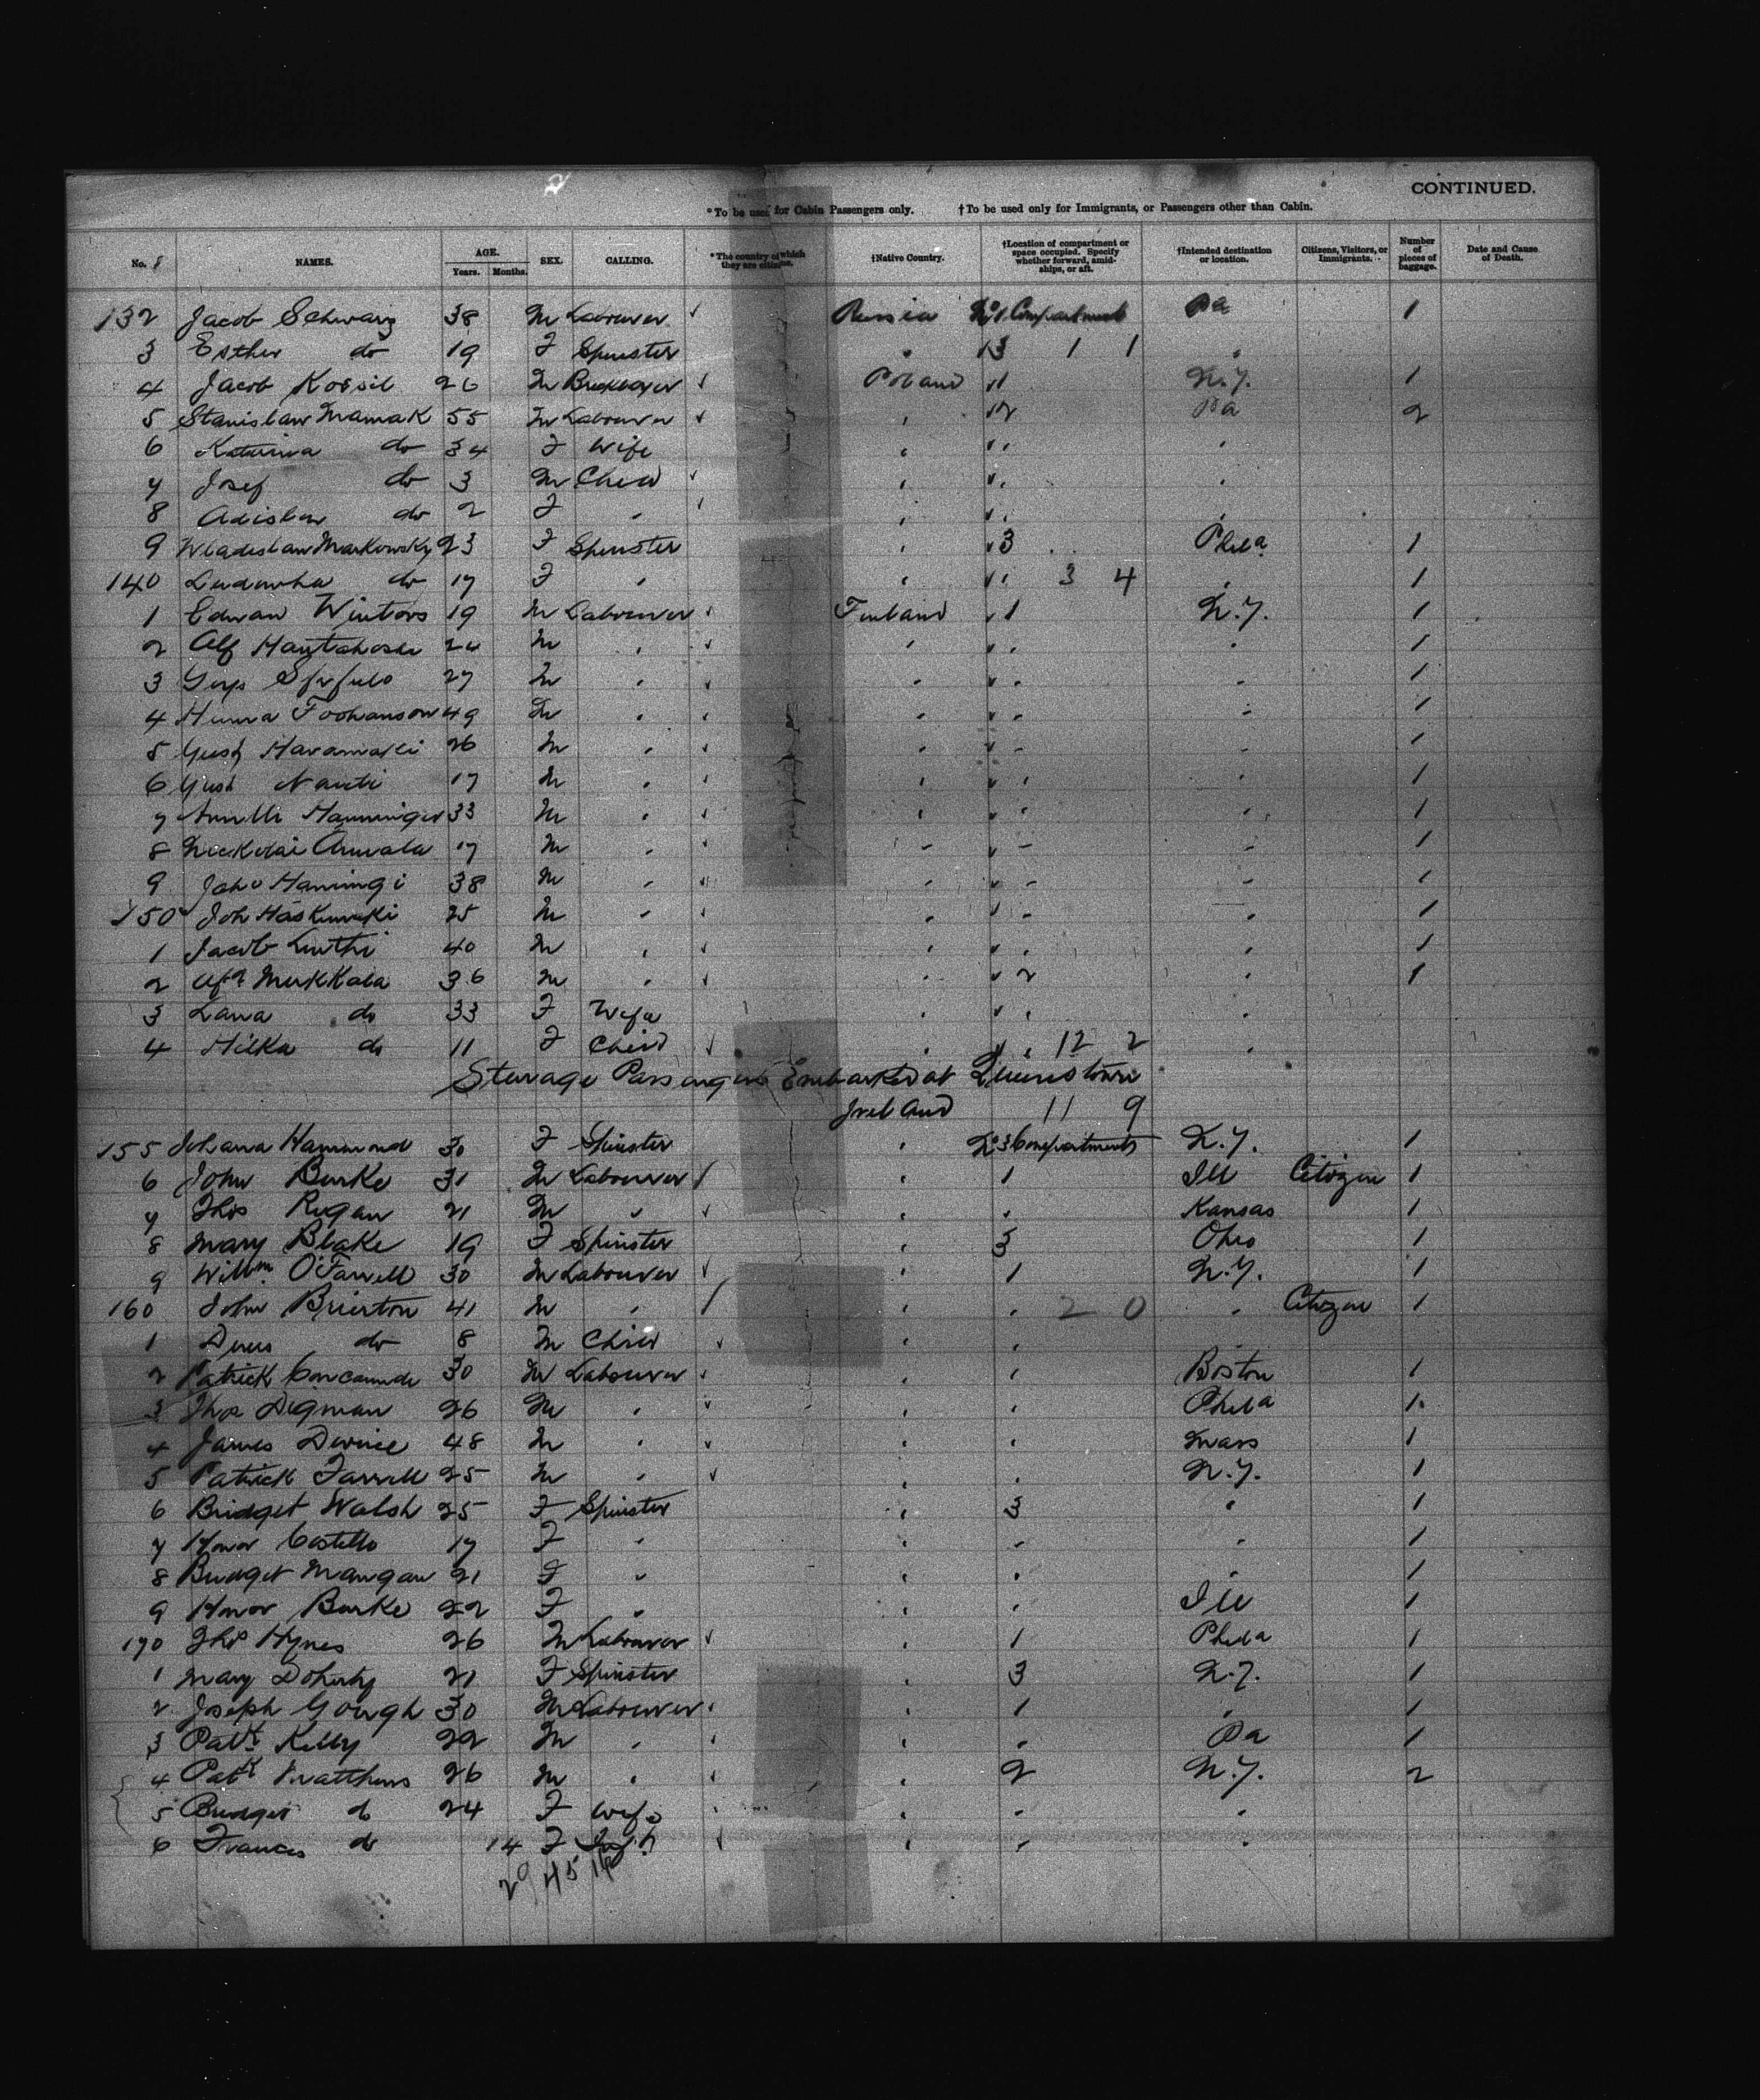 CONTINUED.
*To be used for Cabin Passengers only. †To be used only for Immigrants, or Passengers other than Cabin.
No. NAMES. AGE. Years. Months. SEX. CALLING. *The country of which they are citizens. †Native Country. †Location of compartment or space occupied. Specify whether forward, amidships, or aft. †Intended destination or location. Citizens, Visitors, or Immigrants. Number of pieces of baggage. Date and Cause of Death.
132 Jacob Schwarz 38 M Labourer Russia No 1 Compartment Pa 1
3 Esther do 19 F Spinster " 3 1 1 "
4 Jacob Kossil 26 M Poland 1 N.Y. 1
5 Stanislaw Mamak 55 M Labourer " 2 Pa 2
6 Katarina do 34 F Wife " " "
7 Josef do 3 M Child " " "
8 Adislaw do 2 F " " " "
9 Wladislaw Markowsky 23 F Spinster " 3 Phila 1
140 Ludowka do 17 F " " " 3 4 " 1
1 Edwar Wintors 19 M Labourer Finland 1 N.Y. 1
2 Alf 24 M " " " " 1
3 27 M " " " " 1
4 49 M " " " " 1
5 Havamaki 26 M " " " " 1
6 Nauti 17 M " " " " 1
7 33 M " " " " 1
8 Nickolai 17 M " " " " 1
9 38 M " " " " 1
150 Joh 25 M " " " " 1
1 Jacob Luthi 40 M " " " " 1
2 Mukkala 36 M " " 2 " 1
3 do 33 F Wife " " "
4 Hilka do 11 F Child " " 12 2 "
Steerage Passengers Embarked at Queenstown
Ireland 11 9
155 Johana Hammond 30 F Spinster " No 3 Compartment N.Y. 1
6 John Burke 31 M Labourer " 1 Ill Citizen 1
7 Thos Regan 21 M " " " Kansas 1
8 Mary Blake 19 F Spinster " 3 Ohio 1
9 Willm O'Farrell 30 M Labourer " 1 N.Y. 1
160 John Brierton 41 M " " " 2 0 " Citizen 1
1 do 8 M Child " "
2 Patrick 30 M Labourer " " Boston 1
3 Thos Digman 26 M " " " Phila 1
4 James Devine 48 M " " " Mass 1
5 Patrick Farrell 25 M " " " N.Y. 1
6 Bridget Walsh 25 F Spinster " 3 " 1
7 Honor Costello 17 F " " " " 1
8 Bridget Mangan 21 F " " " " 1
9 Honor Burke 22 F " " " Ill 1
170 Thos Hynes 26 M Labourer " 1 Phila 1
1 Mary Doherty 21 F Spinster " 3 N.Y. 1
2 Joseph Gough 30 M Labourer " 1 " 1
3 Patk Kelly 22 M " " " Pa 1
4 Patk Matthews 26 M " " 2 N.Y. 2
5 Bridget do 24 F Wife " " "
6 Frances do 14 F " " "
29 45